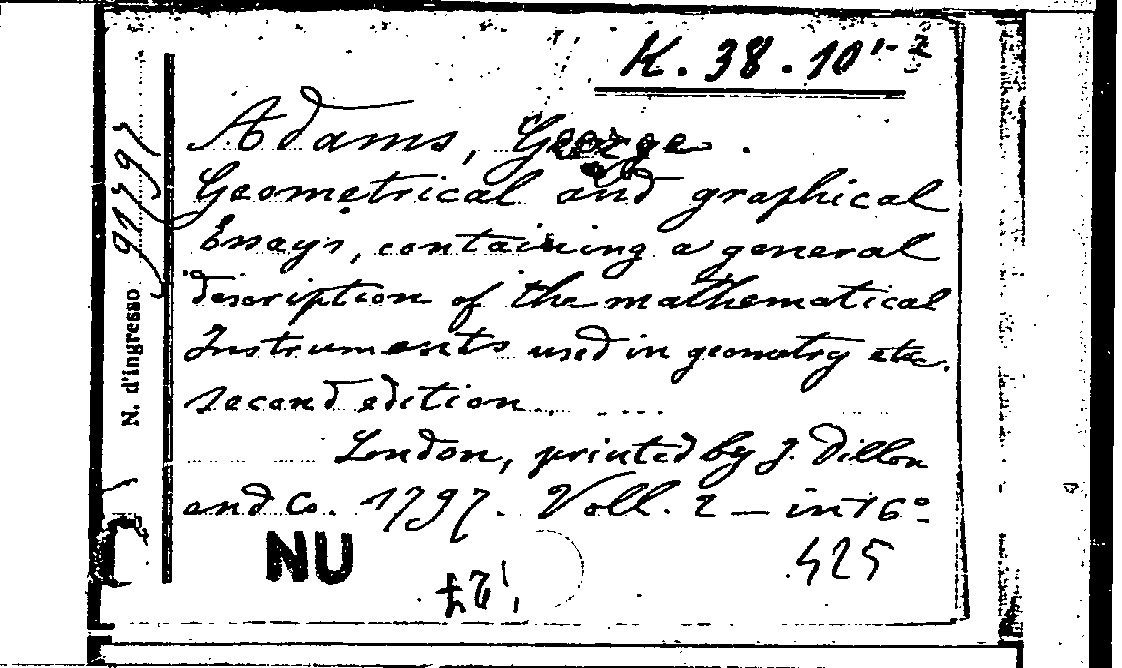 K. 38. 10¹⁻²
Adams, George.
Geometrical and graphical
Essays, containing a general
description of the mathematical
Instruments used in geometry etc.
second edition
London, printed by J. Dillon
and Co. 1797. Voll. 2 — in 16°
NU
425
N. d'ingresso